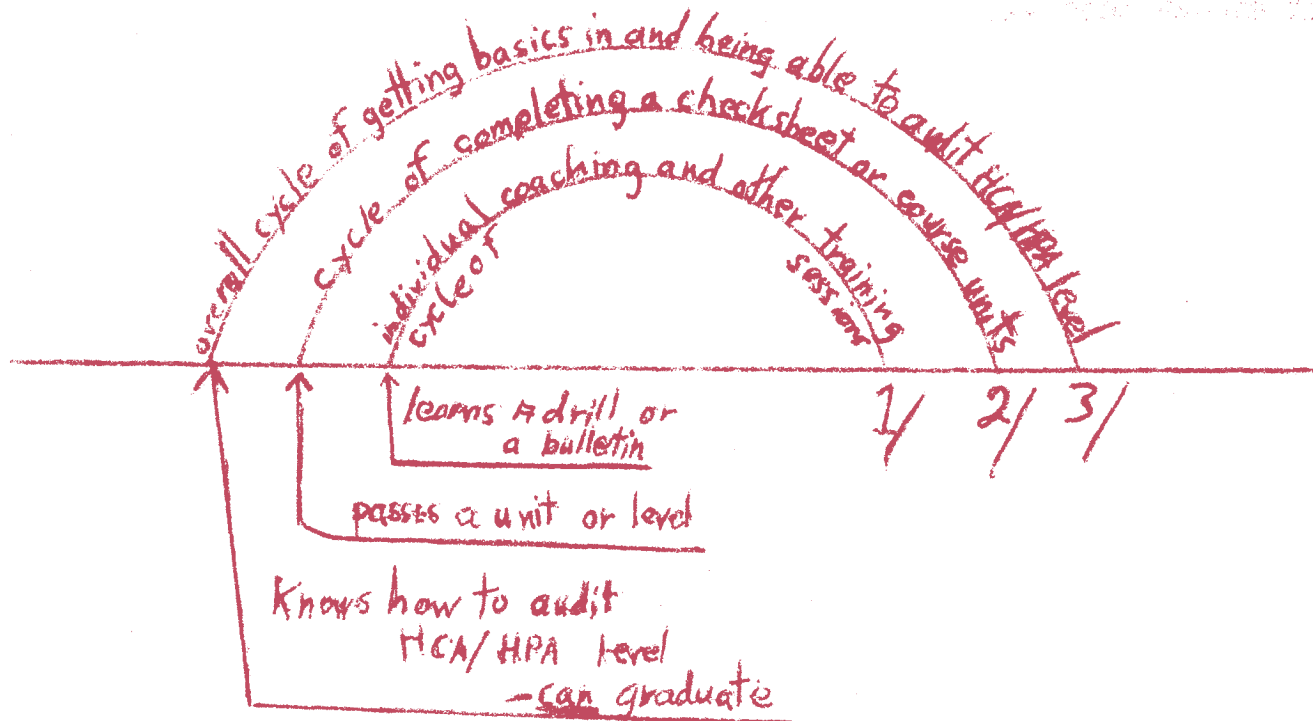 overall cycle of getting basics in and being able to audit HCA/HPA level
cycle of completing a checksheet or course units
individual coaching and other training
cycle of
sessions
1/ 2/ 3/
learns A drill or
a bulletin
passes a unit or level
Knows how to audit
HCA/HPA level
-can graduate